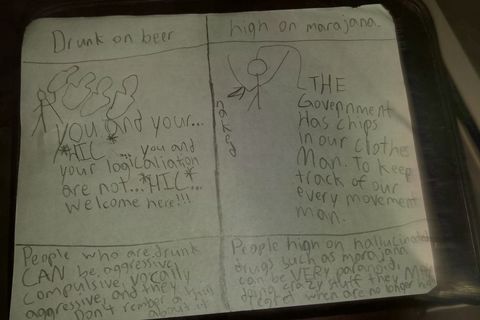 Drunk on beer
you and your...
*HIC* ... you and
your logicaliation
are not... *HIC*...
welcome here!!!
People who are drunk
CAN be aggressive,
compulsive, vocally
aggressive, and they
Don't remember a thing
about it
high on marajana.
THE
Government
Has chips
in our clothes
Man. To keep
track of our
every movement
man.
People high on hallucination
drugs such as marajana
can be VERY paranoid,
doing crazy stuff they MAY
regret when are no longer